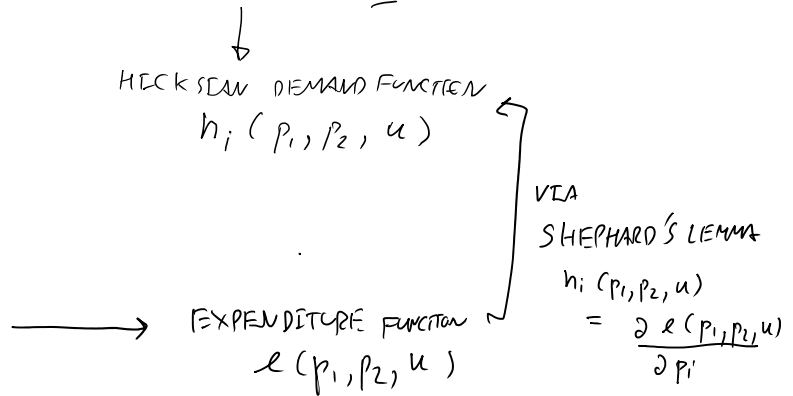 HICKSIAN DEMAND FUNCTION
hᵢ (p₁, p₂, u)
VIA
SHEPHARD'S LEMMA
hᵢ (p₁, p₂, u)
= ∂ e (p₁, p₂, u)
∂ pᵢ
EXPENDITURE FUNCTION
e (p₁, p₂, u)